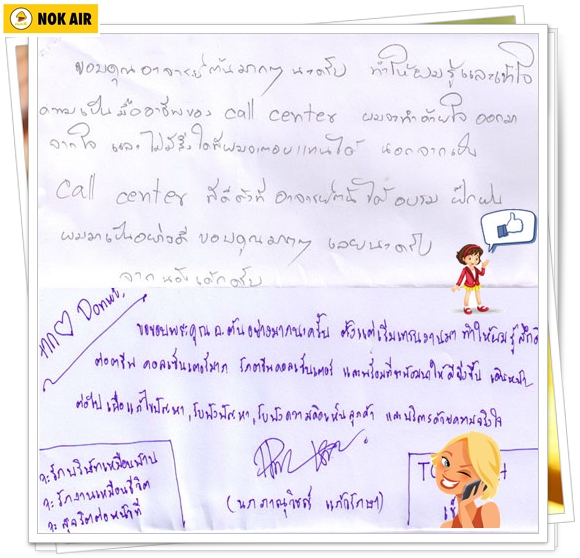 NOK AIR
ขอบคุณอาจารย์ต้นมากๆ นะครับ ทำให้ผมรู้และเข้าใจ
ความเป็นมืออาชีพของ call center ผมจะทำด้วยใจ ออกมา
จากใจ และไม่มีสิ่งใดที่ผมจะตอบแทนได้ นอกจากเป็น
call center ที่ดีดั่งที่ อาจารย์ต้นได้อบรม ฝึกฝน
ผมมาเป็นอย่างดี ขอบคุณมากๆ เลยนะครับ
ขอขอบพระคุณ อ.ต้นอย่างมากนะครับ ตั้งแต่เริ่มเทรนงานมา ทำให้ผมรู้สึกดี
ต่ออาชีพ คอลเซ็นเตอร์มาก รักอาชีพคอลเซ็นเตอร์ และพร้อมที่จะพัฒนาให้ดียิ่งขึ้น เดินหน้า
ต่อไป เพื่อแก้ไขปัญหา, รับฟังปัญหา, รับฟังความคิดเห็นลูกค้า และบริการด้วยความจริงใจ
จะรักบริษัทเหมือนบ้าน
จะรักงานเหมือนชีวิต
จะสุจริตต่อหน้าที่